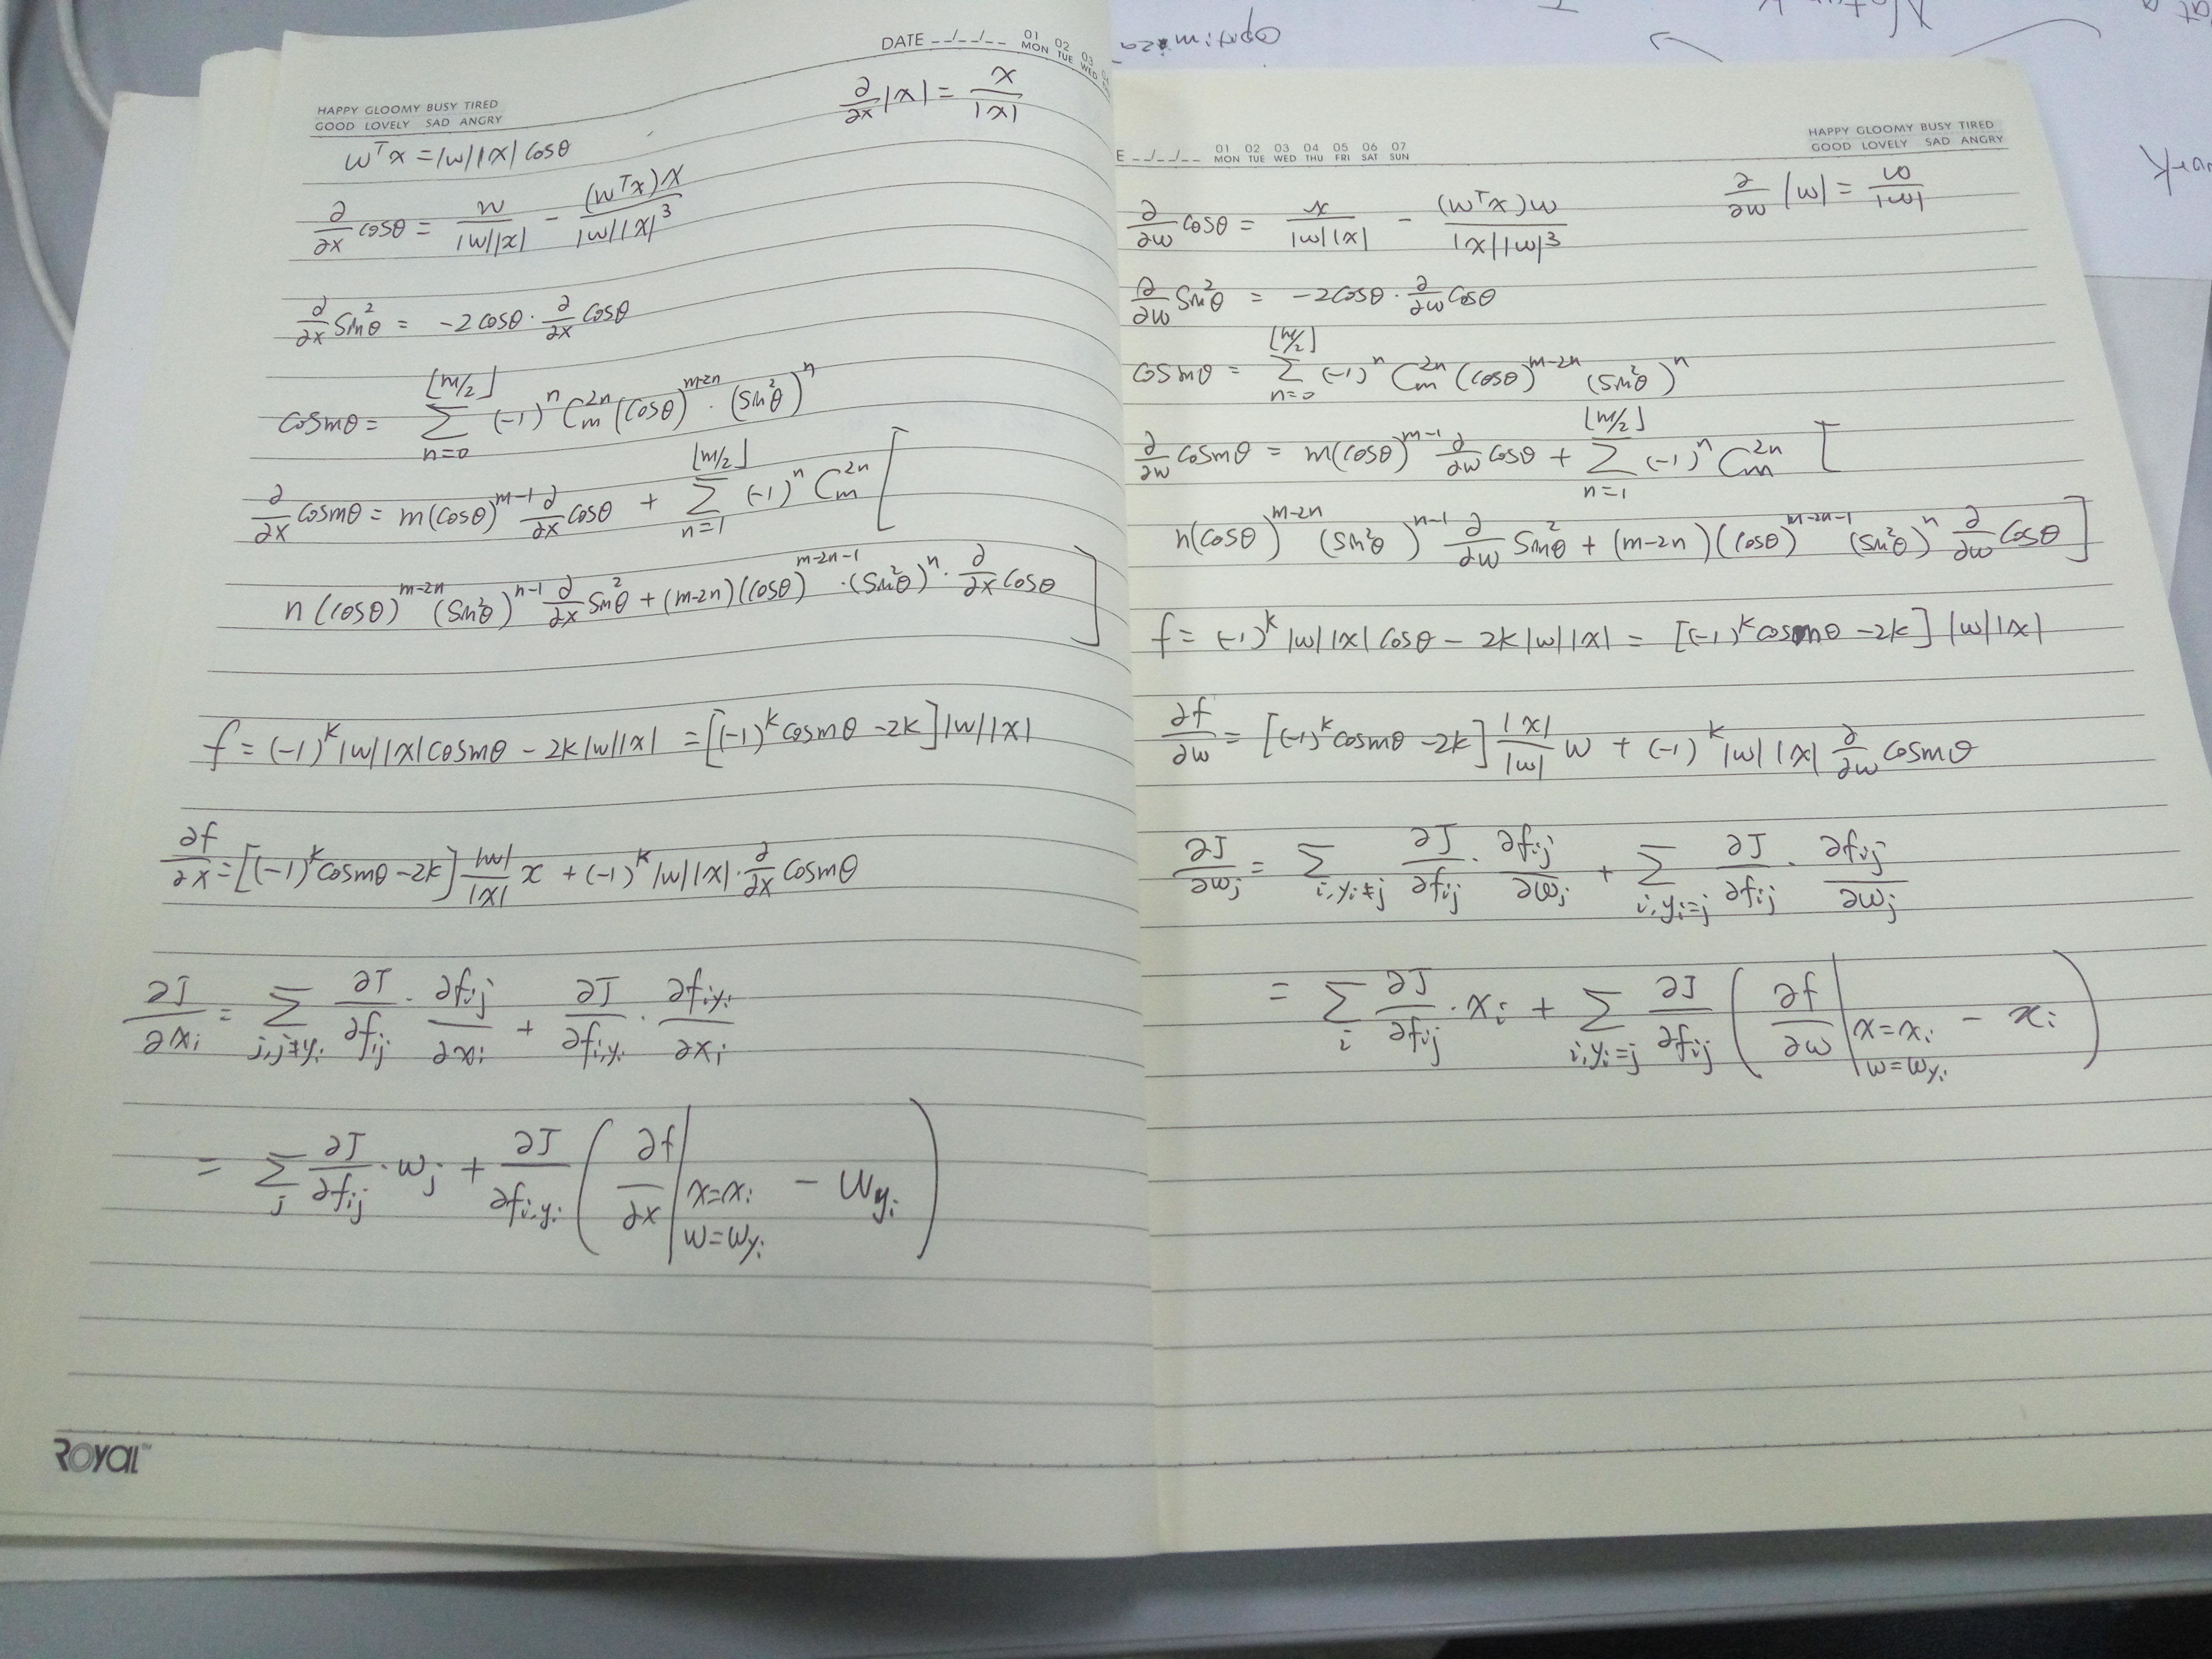 DATE __/__/__ 01 MON 02 TUE 03 WED
HAPPY GLOOMY BUSY TIRED
GOOD LOVELY SAD ANGRY
∂/∂x |x| = x/|x|
w^T x = |w||x| cosθ
∂/∂x cosθ = w/(|w||x|) - (w^T x)x/(|w||x|^3)
∂/∂x sin^2θ = -2cosθ · ∂/∂x cosθ
cosmθ = Σ_{n=0}^{⌊m/2⌋} (-1)^n C_m^{2n} (cosθ)^{m-2n} · (sin^2θ)^n
∂/∂x cosmθ = m(cosθ)^{m-1} ∂/∂x cosθ + Σ_{n=1}^{⌊m/2⌋} (-1)^n C_m^{2n} [
n(cosθ)^{m-2n} (sin^2θ)^{n-1} ∂/∂x sin^2θ + (m-2n)(cosθ)^{m-2n-1} · (sin^2θ)^n · ∂/∂x cosθ ]
f = (-1)^k |w||x| cosmθ - 2k|w||x| = [(-1)^k cosmθ - 2k] |w||x|
∂f/∂x = [(-1)^k cosmθ - 2k] |w|/|x| x + (-1)^k |w||x| · ∂/∂x cosmθ
∂J/∂x_i = Σ_{j,j≠y_i} ∂J/∂f_{ij} · ∂f_{ij}/∂x_i + ∂J/∂f_{i,y_i} · ∂f_{i,y_i}/∂x_i
= Σ_j ∂J/∂f_{ij} · w_j + ∂J/∂f_{i,y_i} ( ∂f/∂x |_{x=x_i, w=w_{y_i}} - w_{y_i} )
ROYAL™
E __/__/__ 01 MON 02 TUE 03 WED 04 THU 05 FRI 06 SAT 07 SUN
HAPPY GLOOMY BUSY TIRED
GOOD LOVELY SAD ANGRY
∂/∂w |w| = w/|w|
∂/∂w cosθ = x/(|w||x|) - (w^T x)w/(|x||w|^3)
∂/∂w sin^2θ = -2cosθ · ∂/∂w cosθ
cosmθ = Σ_{n=0}^{⌊m/2⌋} (-1)^n C_m^{2n} (cosθ)^{m-2n} (sin^2θ)^n
∂/∂w cosmθ = m(cosθ)^{m-1} ∂/∂w cosθ + Σ_{n=1}^{⌊m/2⌋} (-1)^n C_m^{2n} [
n(cosθ)^{m-2n} (sin^2θ)^{n-1} ∂/∂w sin^2θ + (m-2n)(cosθ)^{m-2n-1} (sin^2θ)^n ∂/∂w cosθ ]
f = (-1)^k |w||x| cosθ - 2k|w||x| = [(-1)^k cosmθ - 2k] |w||x|
∂f/∂w = [(-1)^k cosmθ - 2k] |x|/|w| w + (-1)^k |w||x| ∂/∂w cosmθ
∂J/∂w_j = Σ_{i,y_i≠j} ∂J/∂f_{ij} · ∂f_{ij}/∂w_j + Σ_{i,y_i=j} ∂J/∂f_{ij} · ∂f_{ij}/∂w_j
= Σ_i ∂J/∂f_{ij} · x_i + Σ_{i,y_i=j} ∂J/∂f_{ij} ( ∂f/∂w |_{x=x_i, w=w_{y_i}} - x_i )